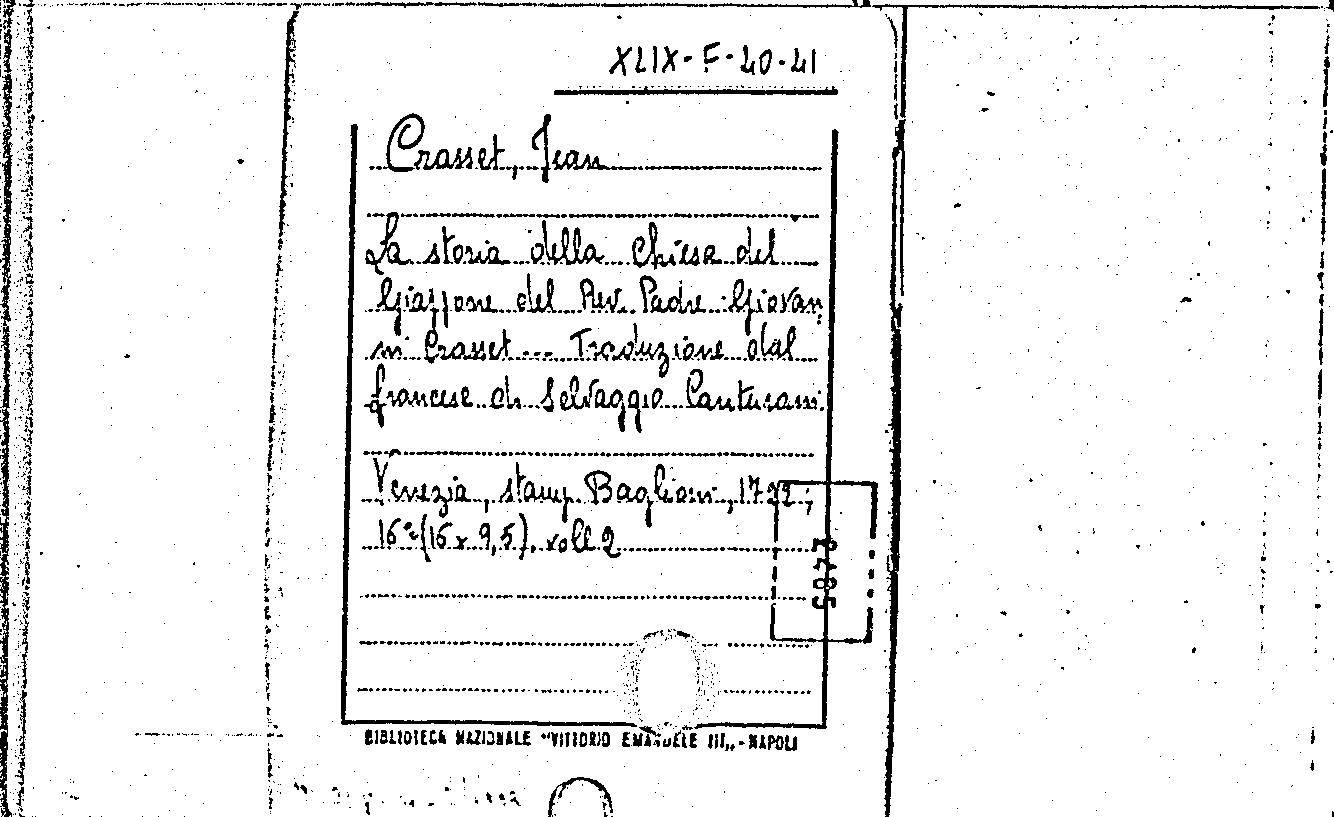 XLIX-F-40-41
Crasset, Jean
La storia della Chiesa del
Giappone del Rev. Padre Giovan
ni Crasset --- Traduzione dal
francese di Selvaggio Canturani.
Venezia, stamp. Baglioni, 1722;
16° (16 x 9,5). voll 2
2405
BIBLIOTECA NAZIONALE "VITTORIO EMANUELE III„ - NAPOLI